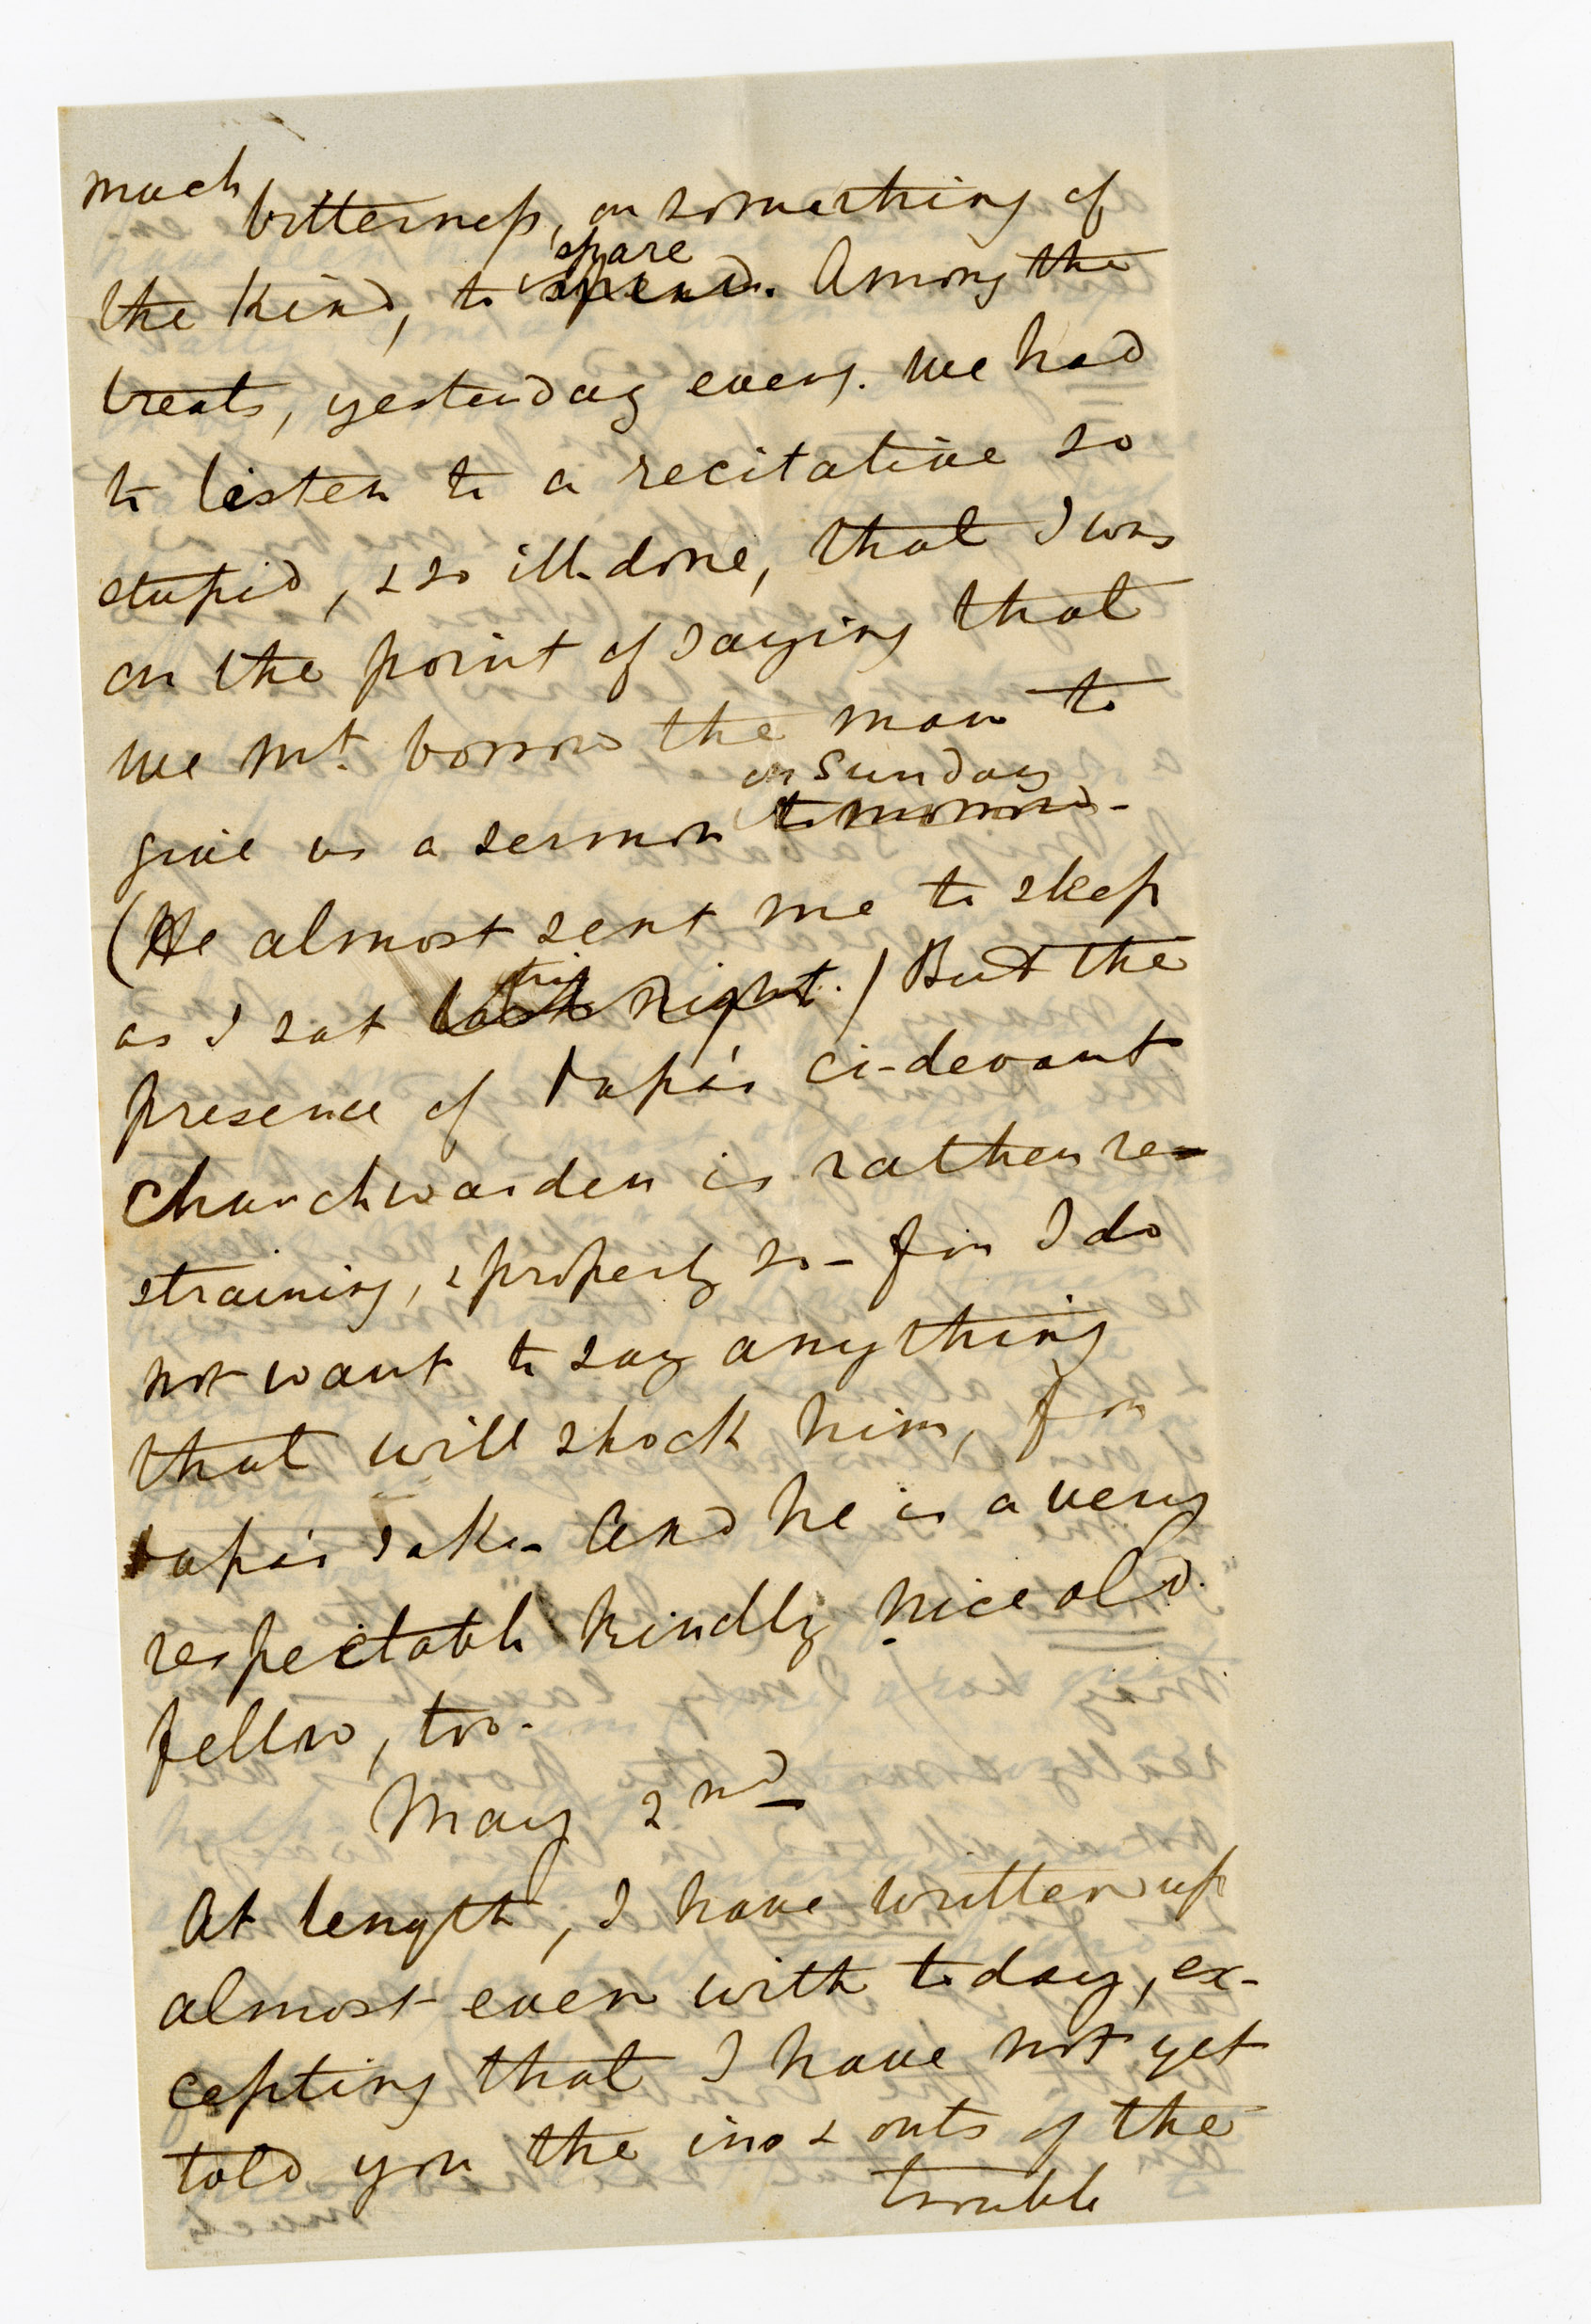 much bitterness, or something of
the kind, to spare spend. Among the
treats, yesterday eveng. we had
to listen to a recitative so
stupid, & so ill-done, that I was
on the point of saying that
we mt. borrow the man to
on Sunday
give us a sermon tomorrow-
(He almost sent me to sleep
as I sat last night.) But the
presence of Papa's ci-devant
Churchwarden is rather re-
straining, & properly so- for I do
not want to say anything
that will shock him, for
Papa's sake- And he is a very
respectable kindly nice old
fellow, too-
May 2nd
At length, I have written up
almost even with today, ex-
cepting that I have not yet
told you the ins & outs of the
trouble